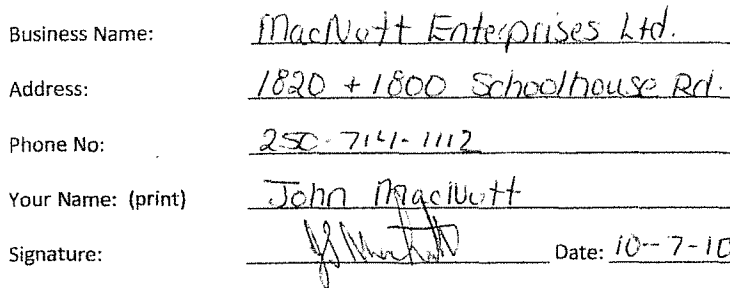 Business Name: MacNutt Enterprises Ltd.
Address: 1820 + 1800 Schoolhouse Rd.
Phone No: 250-714-1112
Your Name: (print) John MacNutt
Signature: Date: 10-7-10